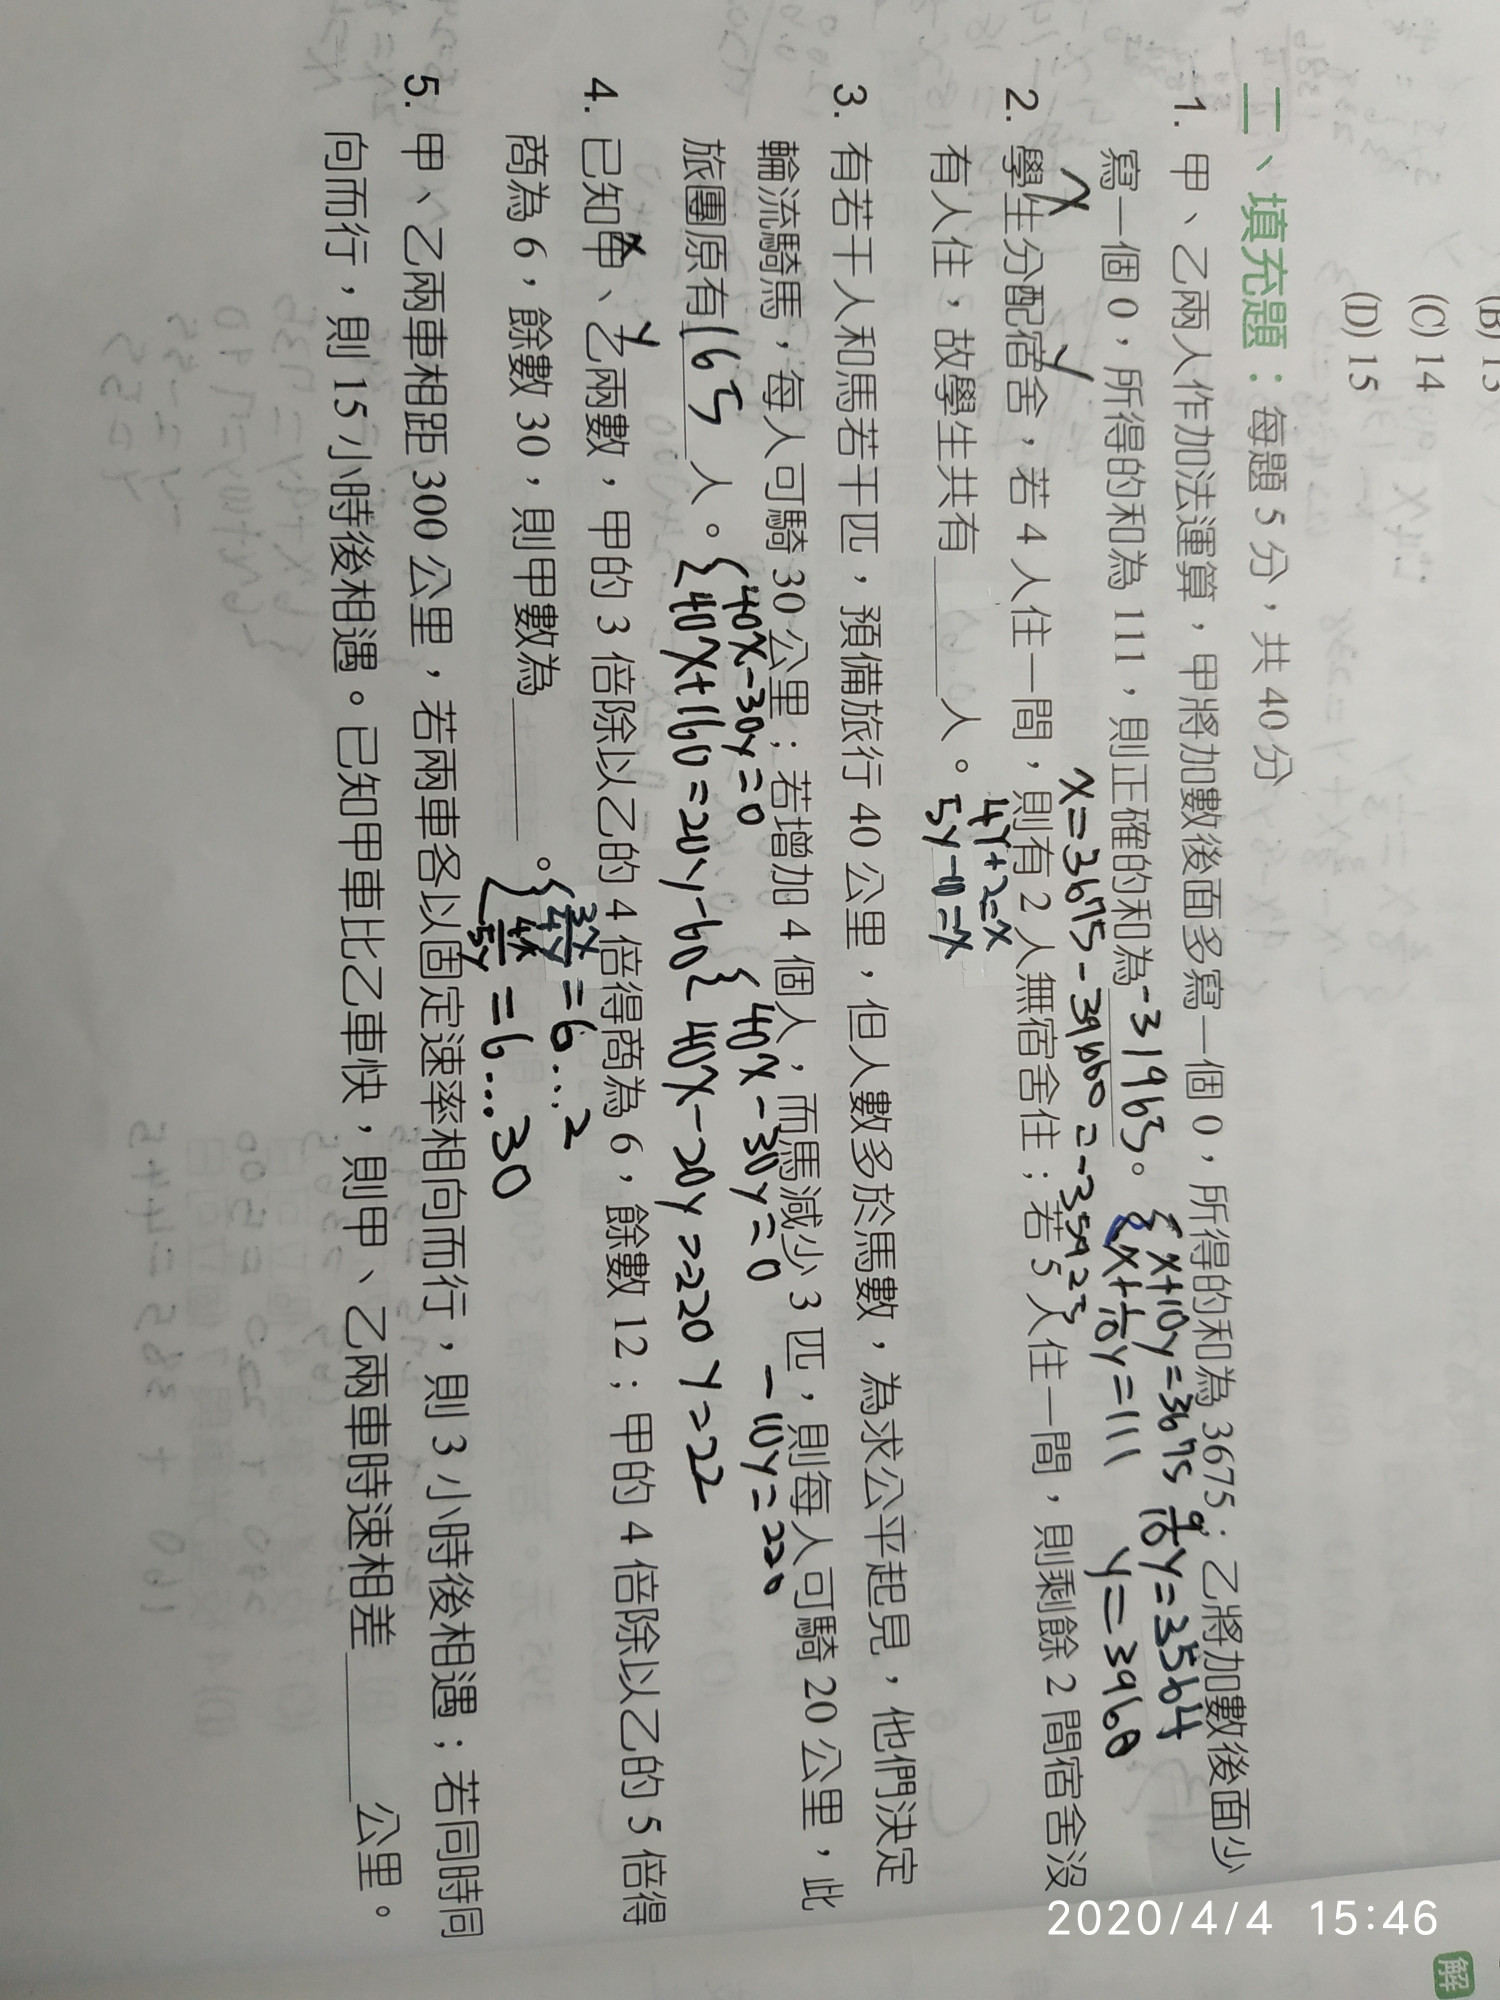 (B) 13
(C) 14
(D) 15
二、填充題：每題 5 分，共 40 分
1. 甲、乙兩人作加法運算，甲將加數後面多寫一個 0，所得的和為 3675；乙將加數後面少
寫一個 0，所得的和為 111，則正確的和為 -31965。
{x+10y=3675
x+1/10y=111
9/10y=3564
y=3960
x=3675-39600=-35925
2. 學生分配宿舍，若 4 人住一間，則有 2 人無宿舍住；若 5 人住一間，則剩餘 2 間宿舍沒
x
y
有人住，故學生共有______人。
4y+2=x
5y-10=x
3. 有若干人和馬若干匹，預備旅行 40 公里，但人數多於馬數，為求公平起見，他們決定
輪流騎馬，每人可騎 30 公里；若增加 4 個人，而馬減少 3 匹，則每人可騎 20 公里，此
旅團原有 165 人。
{40x-30y=0
40x+160=20y-60
{40x-30y=0
40x-20y=-220
-10y=220
y=22
4. 已知甲、乙兩數，甲的 3 倍除以乙的 4 倍得商為 6，餘數 12；甲的 4 倍除以乙的 5 倍得
x
y
商為 6，餘數 30，則甲數為______。
{3x/4y=6...2
4x/5y=6...30
5. 甲、乙兩車相距 300 公里，若兩車各以固定速率相向而行，則 3 小時後相遇；若同時同
向而行，則 15 小時後相遇。已知甲車比乙車快，則甲、乙兩車時速相差______公里。
2020/4/4 15:46
解